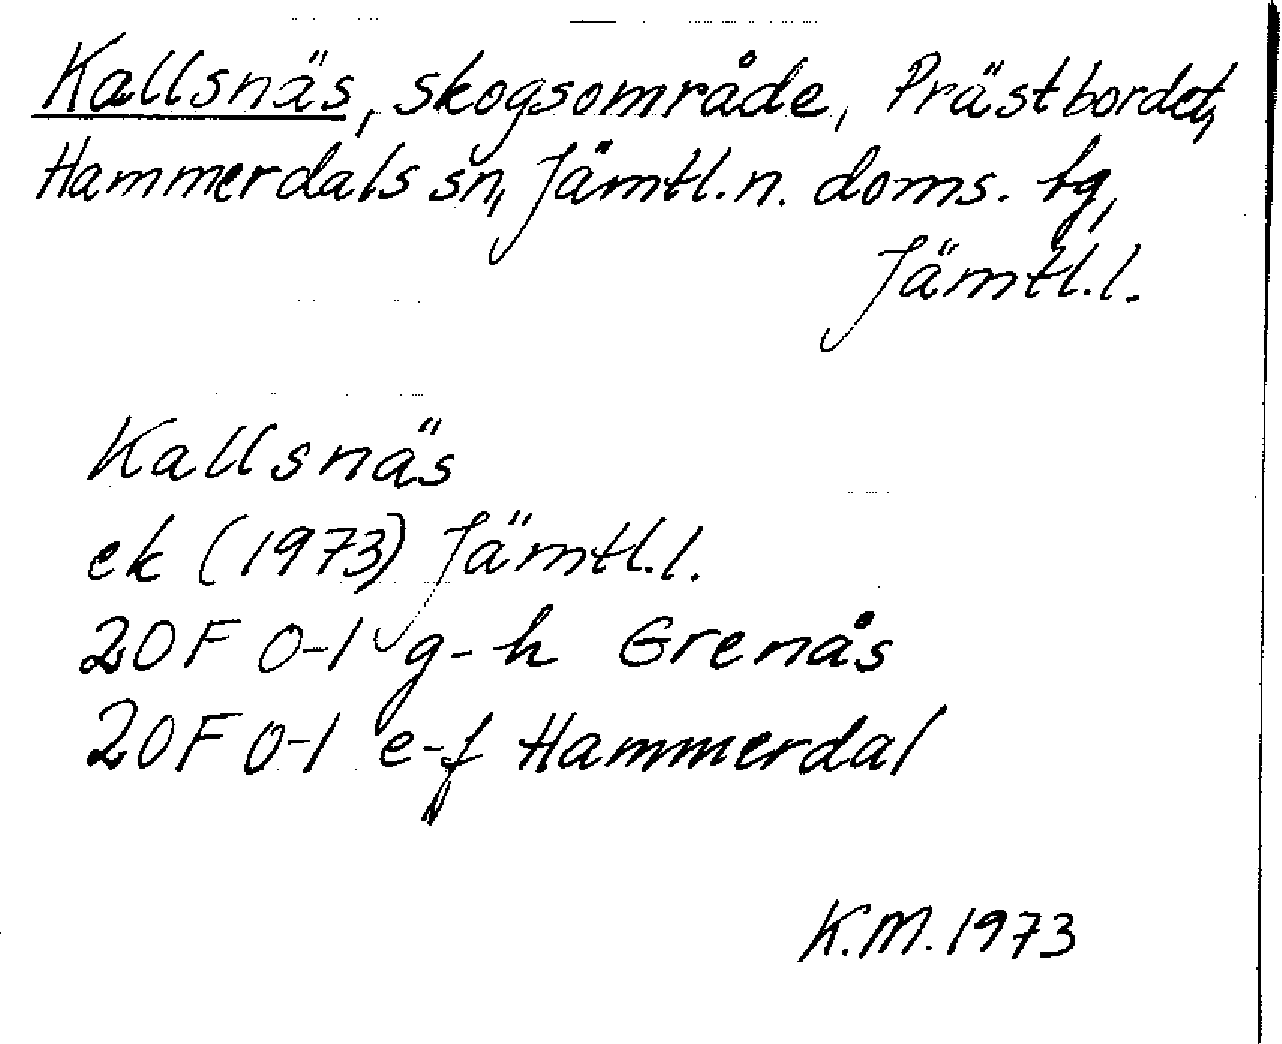 Kallsnäs, skogsområde, Prästbordet,
Hammerdals sn, Jämtl.n. doms. tg,
Jämtl.l.
Kallsnäs
ek (1973) Jämtl.l.
20F 0-1 g-h Grenås
20F 0-1 e-f Hammerdal
K.M. 1973